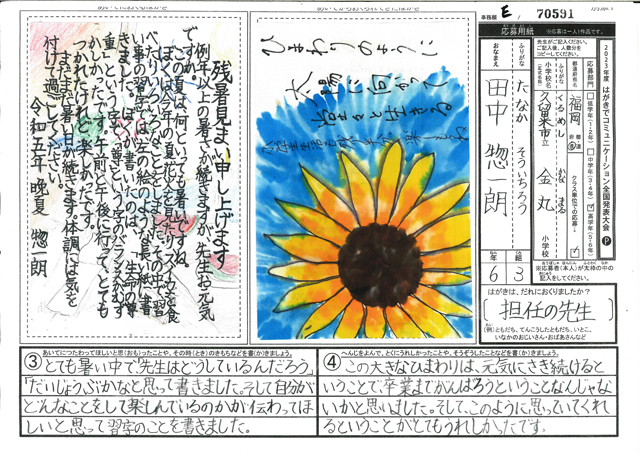 事務欄 E / 70591
残暑見まい申し上げます
例年以上の暑さが続きますが、先生お元気
ですか。
この夏は、何といっても暑いですね。
い事の習字では、左の絵のような長い紙に書
きました。ぼくが書いたのは、「生命の尊
重」という字で「尊」という字のバランスがむず
かしかったです。午前と午後に行って、とても
つかれたけれど、楽しかったです。
まだまだ暑い日が続きます。体調には気を
付けて過ごしてください。
令和五年 晩夏 惣一朗
ひまわりのように
太陽に向かって
応募用紙
※応募は一人1作品です。
先生がご記入ください。
ご記入後、人数分を
コピーしてください。
おなまえ
ふりがな
たなか そういちろう
田中 惣一朗
小学校名
(正式名称)
ふりがな
くるめし かなまる
久留米市立 金丸 小学校
都道府県名
福岡
都道府県
クラス単位下での応募
応募部門
低学年(1・2年)
中学年(3・4年)
高学年(5・6年)
2023年度 はがきでコミュニケーション全国発表大会 P
年 組
6 3
※応募者(本人)が太枠の中の
記入をしてください。
はがきは、だれにおくりましたか?
担任の先生
(例)ともだち、てんこうしたともだち、いとこ、
いなかのおじいさん・おばあさんなど
③ あいてにつたわってほしいと思(おも)ったことや、その時(とき)のきもちなどを書(か)きましょう。
とても暑い中で「先生はどうしているんだろう」
「だいじょうぶかな」と思って書きました。そして自分が
どんなことをして楽しんでいるのかが伝わってほ
しいと思って習字のことを書きました。
④ へんじをよんで、とくにうれしかったことや、そうぞうしたことなどを書(か)きましょう。
この大きなひまわりは、元気にさき続けると
いうことで卒業までがんばろうということなんじゃな
いかと思いました。そして、このように思っていてくれ
るということがとてもうれしかったです。